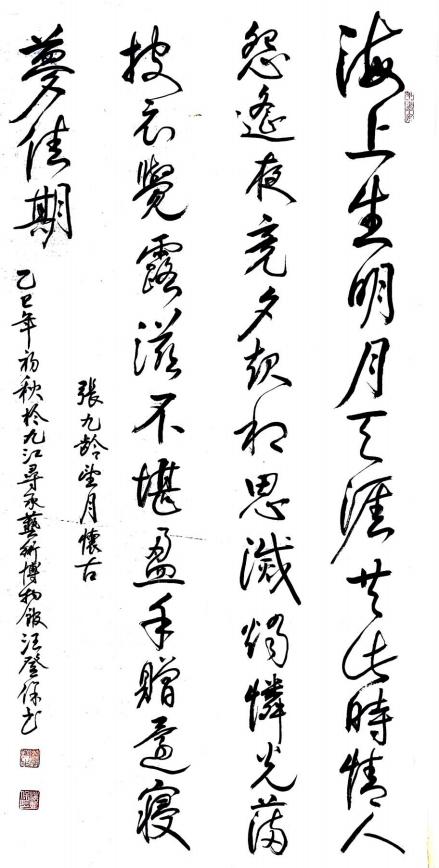 海上生明月天涯共此時情人
怨遙夜竟夕起相思滅燭憐光滿
披衣覺露滋不堪盈手贈還寢
夢佳期
張九齡望月懷古
乙巳年初秋於九江尋承藝術博物館汪登保书